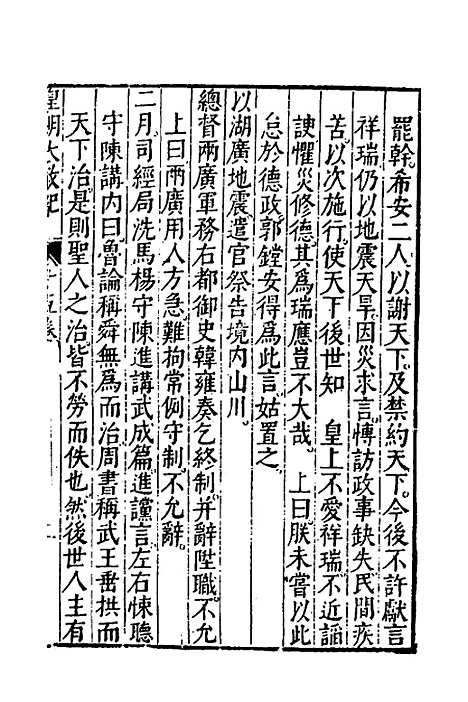 罷幹希安二人以謝天下及禁約天下今後不許獻言
祥瑞仍以地震天旱因災求言慱訪政事缺失民間疾
苦以次施行使天下後世知　皇上不愛祥瑞不近謟
諛懼災修德其爲瑞應豈不大哉　上曰朕未嘗以此
怠於德政郭鏜安得爲此言姑置之
以湖廣地震遣官祭告境内山川
總督兩廣軍務右都御史韓雍奏乞終制并辭陞職不允
上曰兩廣用人方急難拘常例守制不允辭
二月司經局洗馬楊守陳進講武成篇進讜言左右悚聽
守陳講内曰魯論稱舜無爲而治周書稱武王垂拱而
天下治是則聖人之治皆不勞而佚也然後世人主有
皇明大政記　十五卷　二